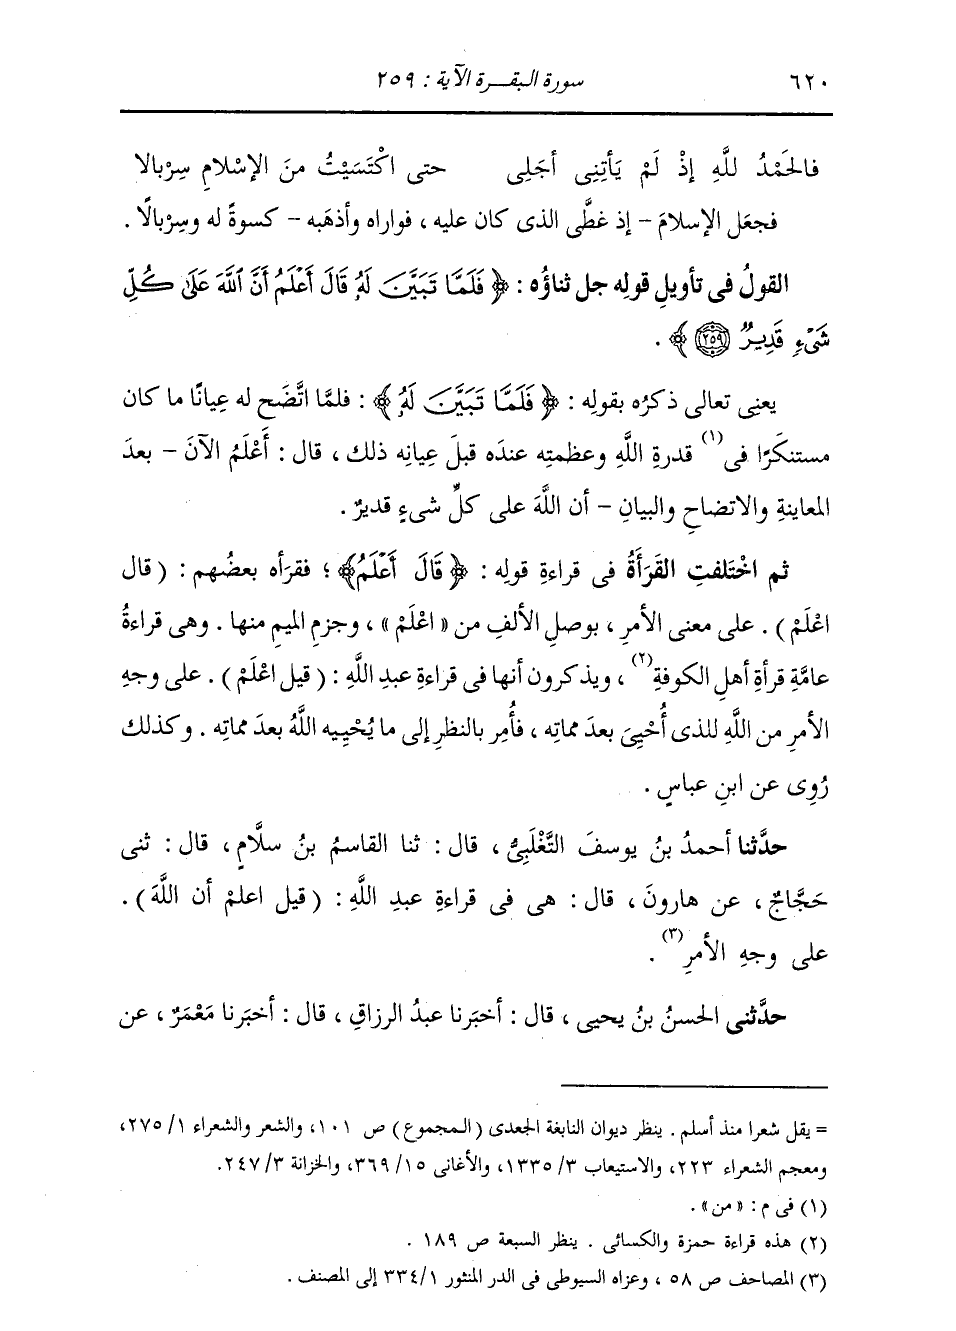 ٦٢٠ سورة البقـرة الآية : ٢٥٩
فالحَمْدُ للَّهِ إذْ لَمْ يَأتِنِى أجَلِى حتى اكْتَسَيْتُ منَ الإسْلامِ سِرْبالا
فجعَل الإسلامَ – إذ غطَّى الذى كان عليه ، فواراه وأذهَبه – كسوةً له وسِرْبالًا .
القولُ فى تأويلِ قولِه جل ثناؤُه : ﴿ فَلَمَّا تَبَيَّنَ لَهُ قَالَ أَعْلَمُ أَنَّ ٱللَّهَ عَلَىٰ كُلِّ
شَىْءٍ قَدِيرٌ ﴿٢٥٩﴾ ﴾ .
يعنِى تعالى ذكرُه بقولِه : ﴿ فَلَمَّا تَبَيَّنَ لَهُ ﴾ : فلمَّا اتَّضَح له عِيانًا ما كان
مستنكَرًا فى(١) قدرةِ اللَّهِ وعظمتِه عندَه قبلَ عِيانِه ذلك ، قال : أَعْلَمُ الآنَ – بعدَ
المعاينةِ والاتضاحِ والبيانِ – أن اللَّهَ على كلِّ شىءٍ قديرٌ .
ثم اخْتَلفتِ القَرَأَةُ فى قراءةِ قولِه : ﴿ قَالَ أَعْلَمُ ﴾ ؛ فقرَأه بعضُهم : ( قال
اعْلَمْ ) . على معنى الأمرِ ، بوصلِ الألفِ من « اعْلَمْ » ، وجزمِ الميمِ منها . وهى قراءةُ
عامَّةِ قرأةِ أهلِ الكوفةِ(٢) ، ويذكرون أنها فى قراءةِ عبدِ اللَّهِ : ( قيل اعْلَمْ ) . على وجهِ
الأمرِ من اللَّهِ للذى أُحْيِىَ بعدَ مماتِه ، فأُمِر بالنظرِ إلى ما يُحْيِيه اللَّهُ بعدَ مماتِه . وكذلك
رُوِى عن ابنِ عباسٍ .
حدَّثنا أحمدُ بنُ يوسفَ التَّغْلَبِىُّ ، قال : ثنا القاسمُ بنُ سلَّامٍ ، قال : ثنى
حَجَّاجٌ ، عن هارونَ ، قال : هى فى قراءةِ عبدِ اللَّهِ : ( قيل اعلمْ أن اللَّهَ ) .
على وجهِ الأمرِ(٣) .
حدَّثنى الحسنُ بنُ يحيى ، قال : أخبَرنا عبدُ الرزاقِ ، قال : أخبَرنا مَعْمَرٌ ، عن
= يقل شعرا منذ أسلم . ينظر ديوان النابغة الجعدى ( المجموع ) ص ١٠١، والشعر والشعراء ١/ ٢٧٥،
ومعجم الشعراء ٢٢٣، والاستيعاب ٣/ ١٣٣٥، والأغانى ١٥/ ٣٦٩، والخزانة ٣/ ٢٤٧.
(١) فى م : « من » .
(٢) هذه قراءة حمزة والكسائى . ينظر السبعة ص ١٨٩ .
(٣) المصاحف ص ٥٨ ، وعزاه السيوطى فى الدر المنثور ٣٣٤/١ إلى المصنف .